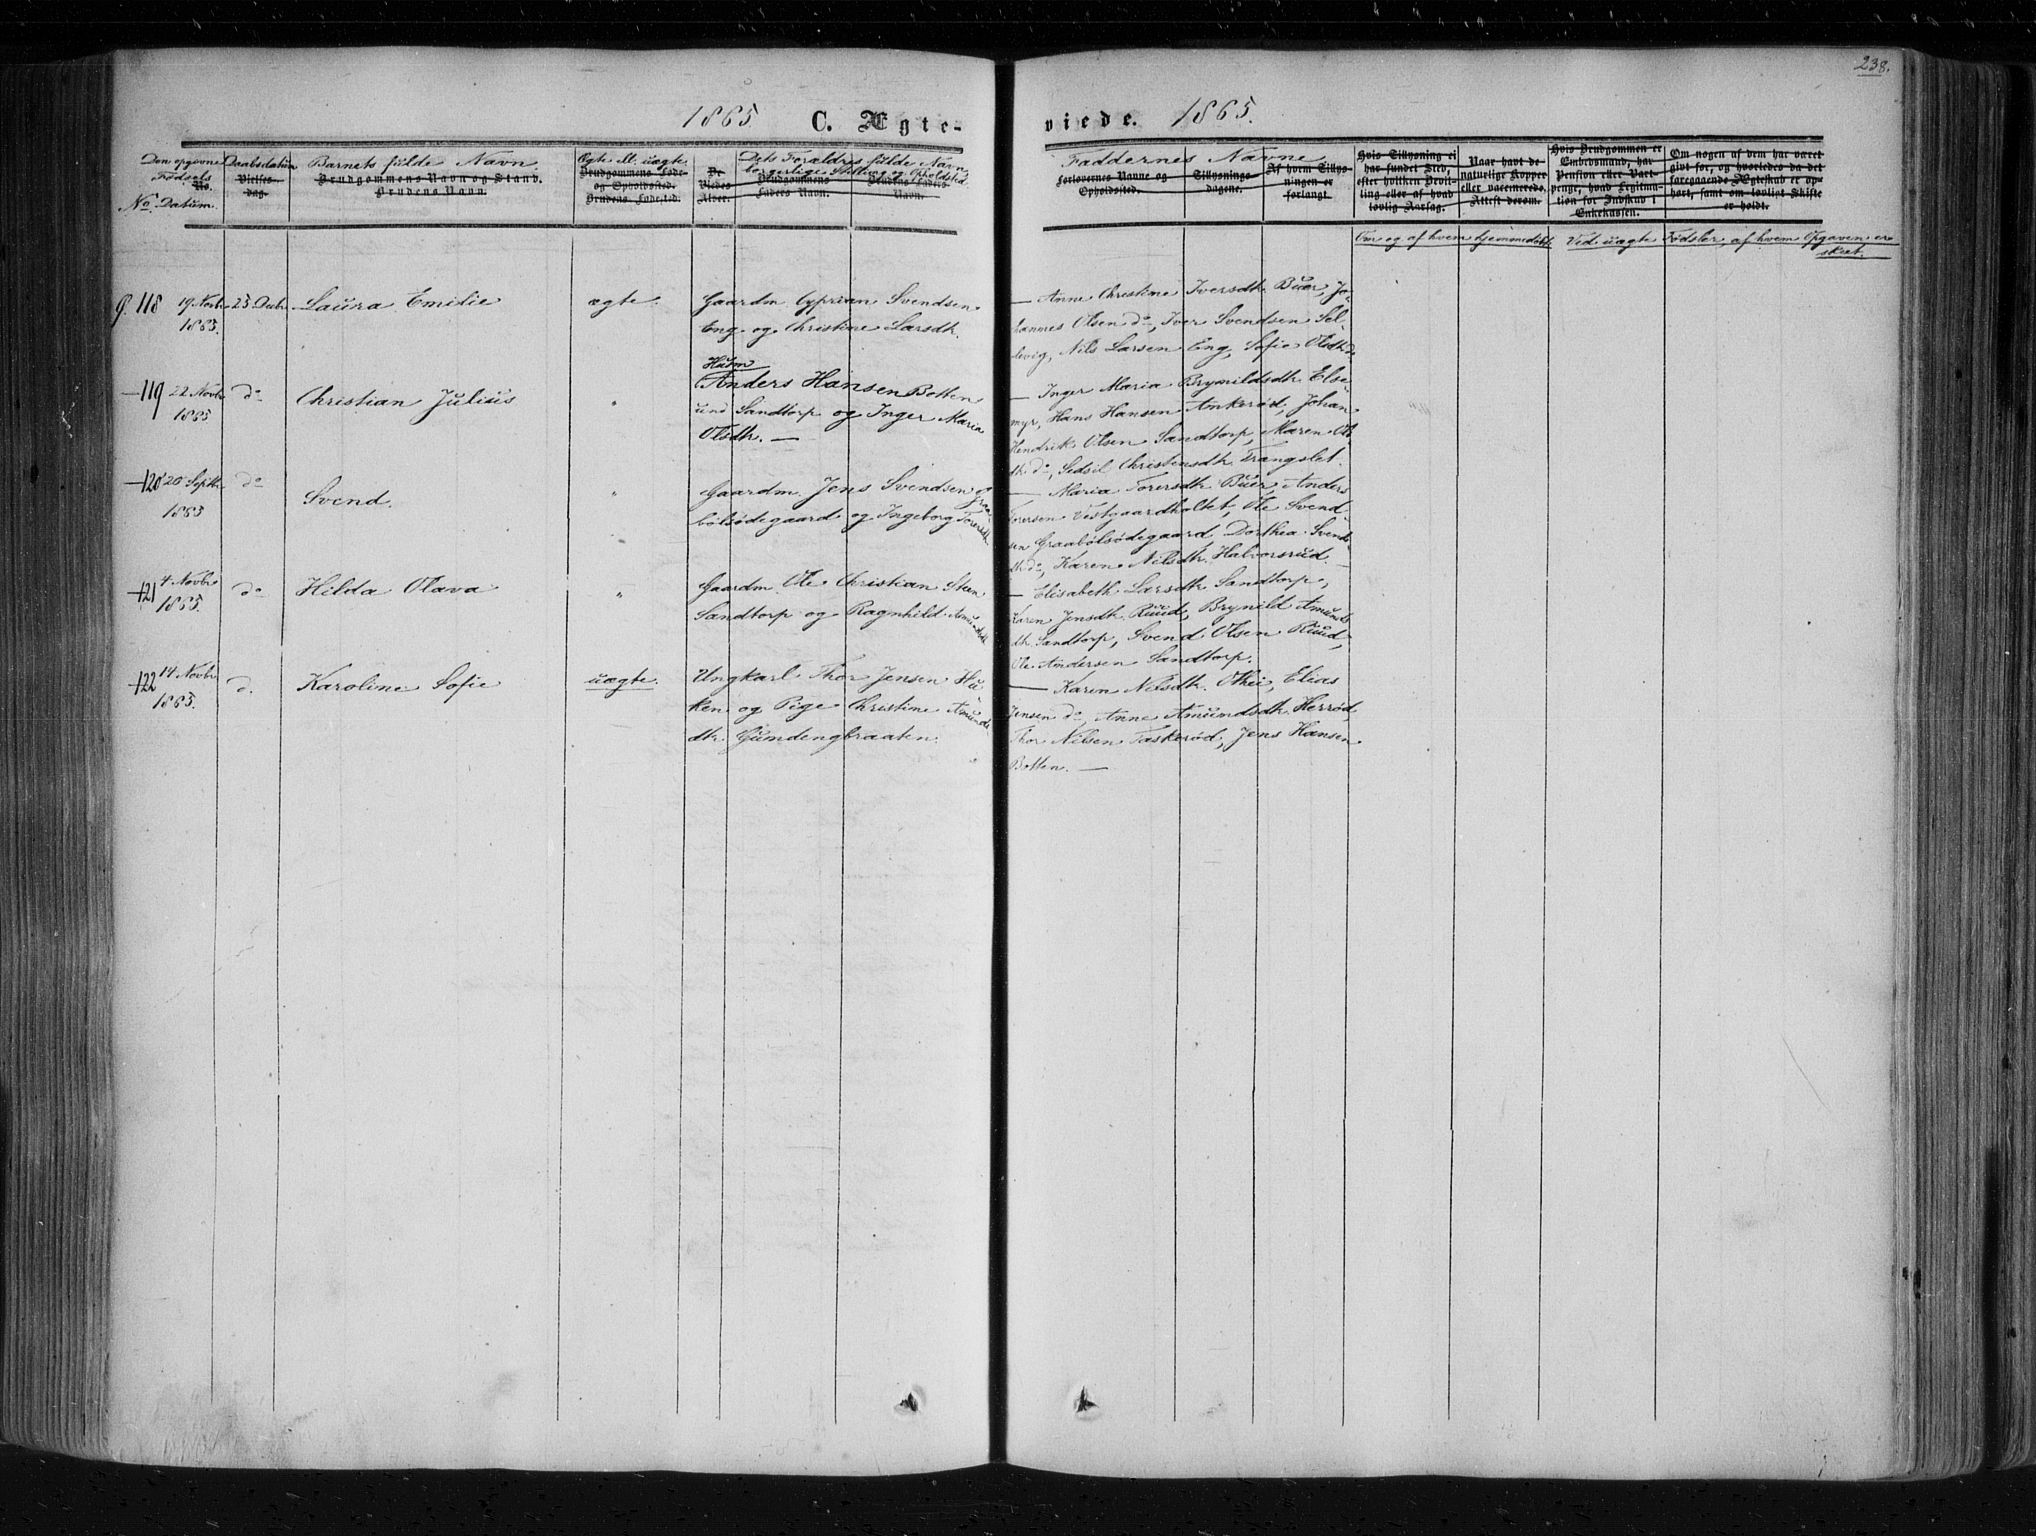 238.
1865 C. Ægte-
viede. 1865.
Den opgivne Fødsels
No.
No. Datum.
Daabsdatum
Vielses-
dag.
Barnets fulde Navn
Brudgommens Navn og Stand.
Brudens Navn.
Ægte ell. uægte
Brudgommens Føde-
og Opholdssted.
Brudens Fødested.
De
Viedes
Alder.
Dets Forældres fulde Navn
borgerlige Stilling og Opholdsted.
Brudgommens
Faders Navn.
Brudens Faders
Navn.
Faddernes Navne
Forlovernes Navne og
Opholdssted.
Tillysnings-
dagene.
Af hvem Tillys-
ningen er
forlangt.
Hvis Tillysning ei
har fundet Sted,
efter hvilken Bevil-
ling eller af hvad
lovlig Aarsag.
Naar havt de
naturlige Kopper
eller vaccinerede.
Attest derom.
Hvis Brudgommen er
Embedsmand, har
Pension eller Vart-
penge, hvad Legitima-
tion for Indskud i
Enkekassen.
Om nogen af dem har været
givt før, og hvorledes da det
foregaaende Ægteskab er op-
hørt, samt om lovligt Skifte
er holdt.
Om og af hvem hjemmedøbt.
Ved uægte Fødsler, af hvem Opgaven er
skeet.
118 19 Novbr 25 Decbr Laura Emilie ægte. Gaardm. Cyprian Svendsen
1865. Eng og Christine Larsdtr.
— Anne Christine Iversdtr. Buer, Jo-
hannes Olsen do, Iver Svendsen Sel-
levig, Nils Larsen Eng, Sofie Olsdtr do
Husm.
119 22 Novbr do Christian Julius " Anders Hansen Botten
1865 und. Sandtorp og Inger Maria
Olsdtr. —
— Inger Maria Brynildsdtr. Else-
myr, Hans Hansen Ankerød, Johan
Hendrik Olsen Sandtorp, Maren Ols-
dtr do, Sidsil Christensdtr. Trangslet.
120 20 Septbr do Svend. " Gaardm. Jens Svendsen Graa-
1865 bølsødegaard og Ingeborg Torersdtr.
— Maria Torersdtr. Buer, Anders
Torersen Vestgaardholtet, Ole Svend-
sen Graabølsødegaard, Dorthea Svends-
dtr do, Karen Nilsdtr. Halvorsrud. —
121 4 Novbr do Hilda Olava " Gaardm. Ole Christian Steen
1865. Sandtorp og Ragnhild Amundsdtr
— Elisabeth Larsdtr Sandtorp,
Karen Jensdtr. Ruud, Brynild Amunds-
dtr Sandtorp, Svend Olsen Ruud,
Ole Andersen Sandtorp.
122 14 Novbr d. Karoline Sofie uægte. Ungkarl Thor Jensen Hu-
1865. ken og Pige Christine Amunds-
dtr Gumdengbraaten.
— Karen Nilsdtr. Othei, Elias
Jensen do, Anne Amundsdtr. Herrød,
Thor Nilsen Taskerød, Jens Hansen
Botten. —